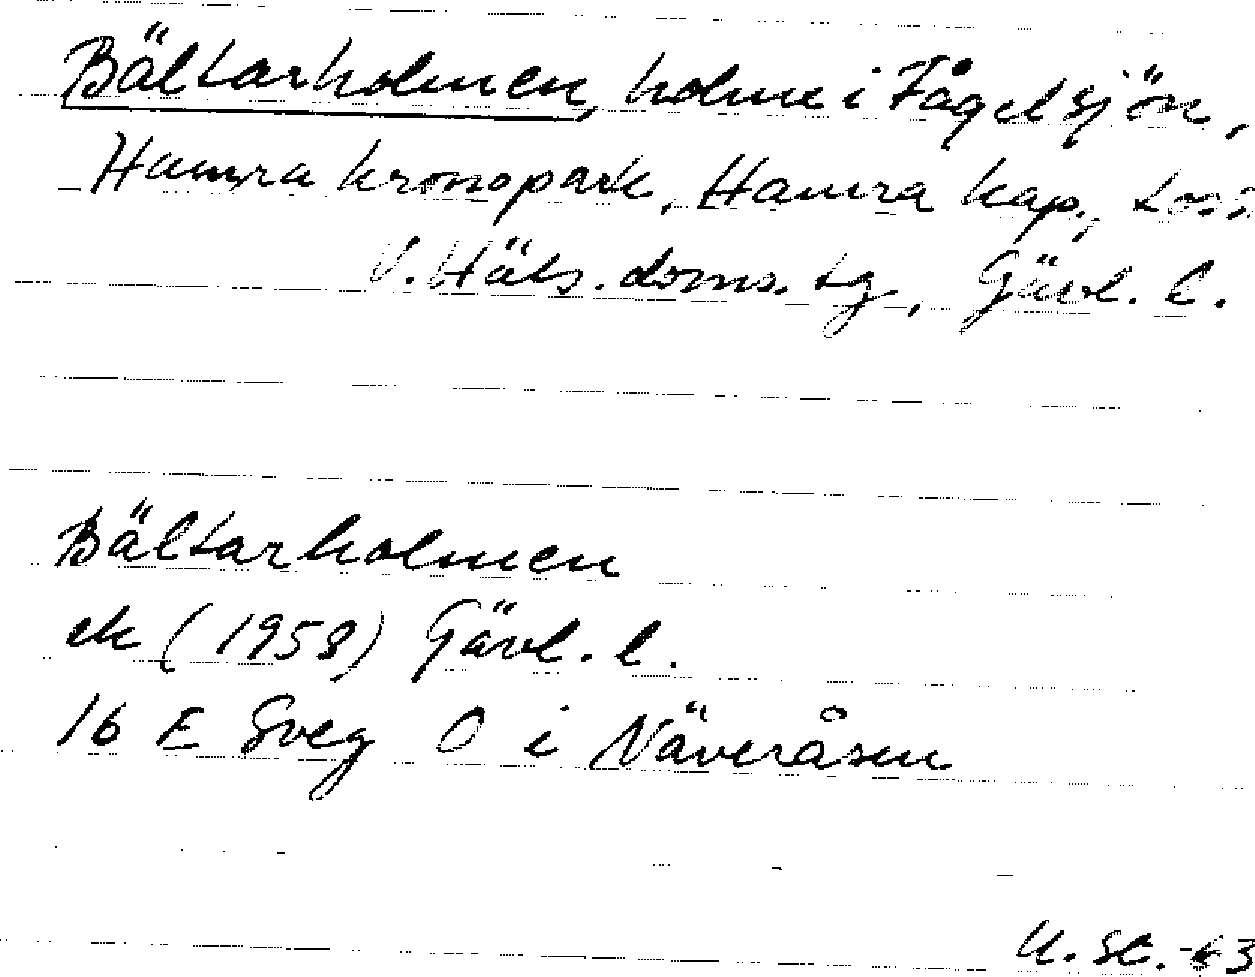 Bältarholmen, holme i Fågelsjön,
Hamra kronopark, Hamra kap.,
V. Häls. doms. tg, Gävl. l.
Bältarholmen
ek (1958) Gävl. l.
16 E Sveg O i Näveråsen
U. Sl. -63